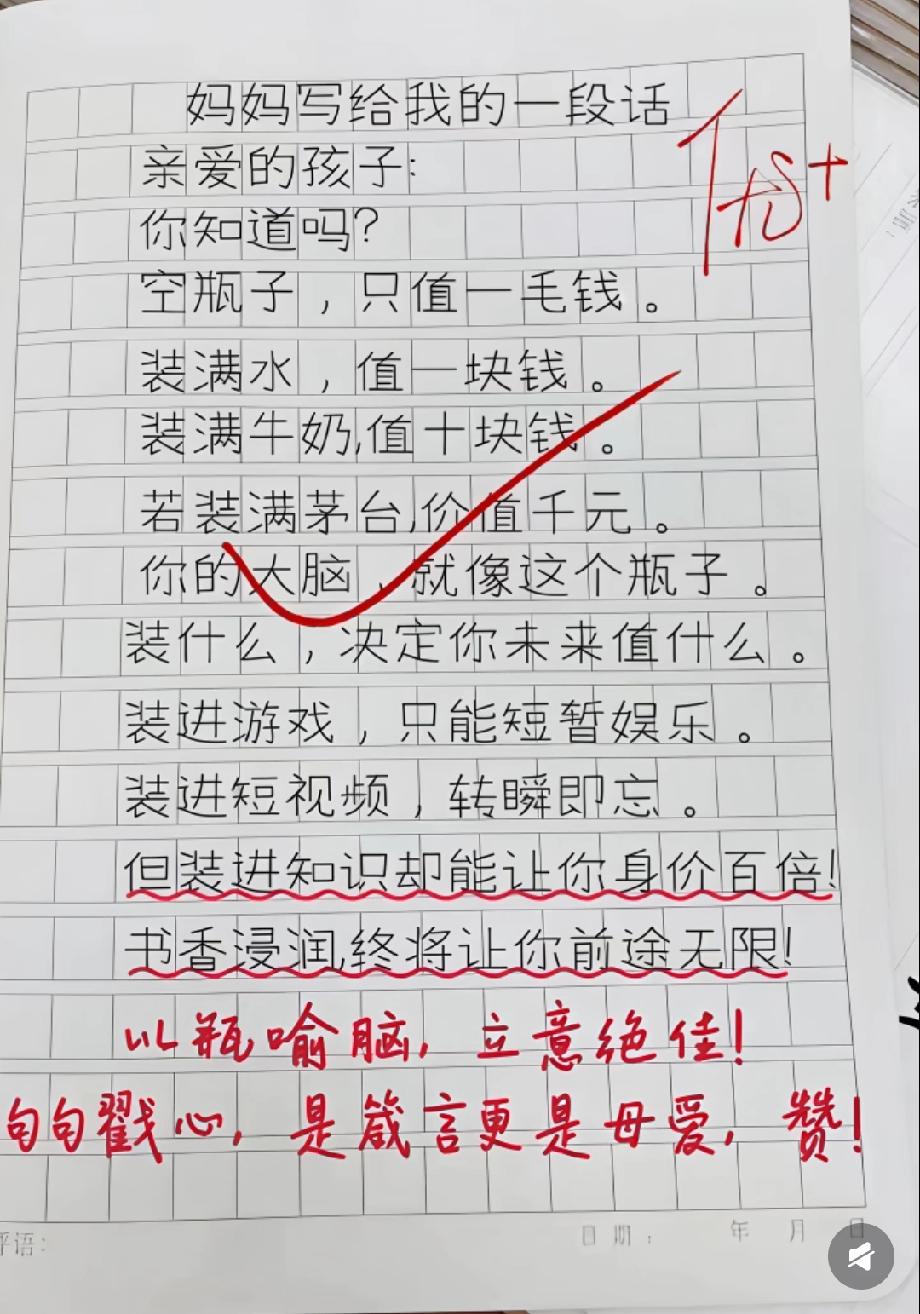 妈妈写给我的一段话
优+
亲爱的孩子:
你知道吗?
空瓶子，只值一毛钱。
装满水，值一块钱。
装满牛奶,值十块钱。
若装满茅台,价值千元。
你的大脑，就像这个瓶子。
装什么，决定你未来值什么。
装进游戏，只能短暂娱乐。
装进短视频，转瞬即忘。
但装进知识却能让你身价百倍!
书香浸润,终将让你前途无限!
以瓶喻脑，立意绝佳!
句句戳心，是箴言更是母爱，赞!
评语:
日期: 年 月 日